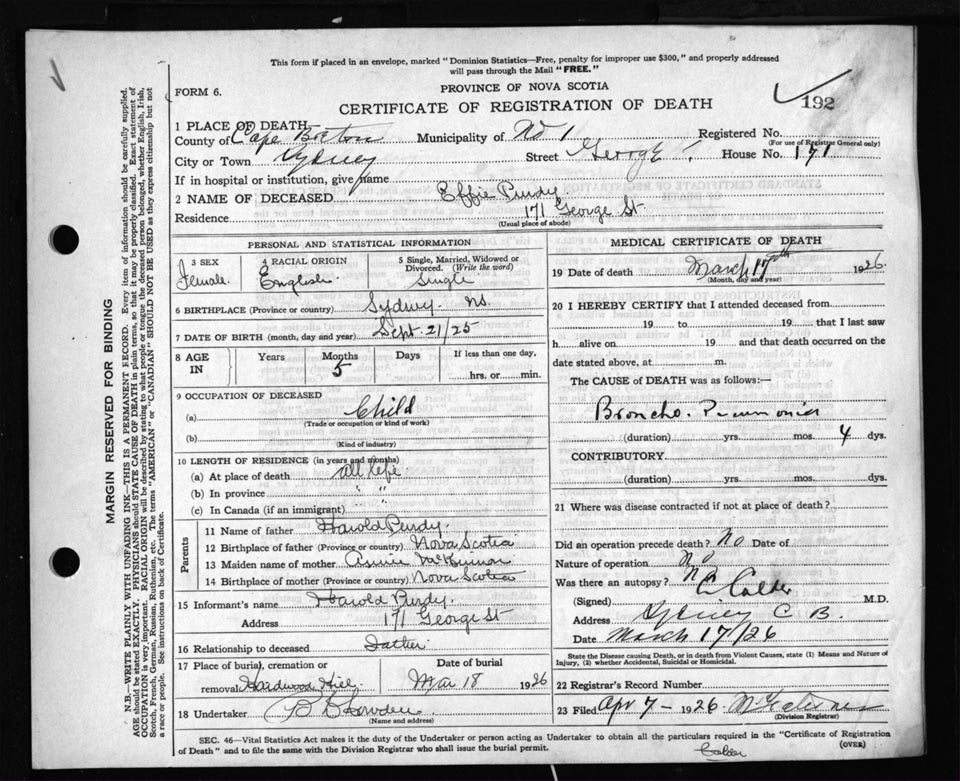 This form if placed in an envelope, marked "Dominion Statistics—Free, penalty for improper use $300," and properly addressed
will pass through the Mail "FREE."
FORM 6.
PROVINCE OF NOVA SCOTIA
CERTIFICATE OF REGISTRATION OF DEATH
192
1 PLACE OF DEATH
County of Cape Breton Municipality of No 1 Registered No.
(For use of Registrar General only)
City or Town Sydney Street George House No. 171
If in hospital or institution, give name
2 NAME OF DECEASED Effie Purdy
Residence 171 George St
(Usual place of abode)
PERSONAL AND STATISTICAL INFORMATION
3 SEX Female
4 RACIAL ORIGIN English
5 Single, Married, Widowed or Divorced. (Write the word) Single
6 BIRTHPLACE (Province or country) Sydney NS
7 DATE OF BIRTH (month, day and year) Sept. 21/25
8 AGE IN Years Months 5 Days If less than one day, hrs. or min.
9 OCCUPATION OF DECEASED
(a) Child
(Trade or occupation or kind of work)
(b)
(Kind of industry)
10 LENGTH OF RESIDENCE (in years and months)
(a) At place of death all life
(b) In province " "
(c) In Canada (if an immigrant)
Parents
11 Name of father Harold Purdy.
12 Birthplace of father (Province or country) Nova Scotia
13 Maiden name of mother McKinnon
14 Birthplace of mother (Province or country) Nova Scotia
15 Informant's name Harold Purdy
Address 171 George St
16 Relationship to deceased Father
17 Place of burial, cremation or removal Hardwood Hill
Date of burial Mar 18 1926
18 Undertaker
(Name and address)
MEDICAL CERTIFICATE OF DEATH
19 Date of death March 17th 1926
(Month, day and year)
20 I HEREBY CERTIFY that I attended deceased from
19 to 19 that I last saw
h alive on 19 and that death occurred on the
date stated above, at m.
The CAUSE of DEATH was as follows:—
Broncho. Pneumonia
(duration) yrs. mos. 4 dys.
CONTRIBUTORY
(duration) yrs. mos. dys.
21 Where was disease contracted if not at place of death?
Did an operation precede death? No Date of
Nature of operation No
Was there an autopsy? No
(Signed) Calder M.D.
Address Sydney C B.
Date March 17/26
State the Disease causing Death, or in death from Violent Causes, state (1) Means and Nature of
Injury, (2) whether Accidental, Suicidal or Homicidal.
22 Registrar's Record Number
23 Filed Apr 7 - 1926
(Division Registrar)
SEC. 46—Vital Statistics Act makes it the duty of the Undertaker or person acting as Undertaker to obtain all the particulars required in the "Certificate of Registration
of Death" and to file the same with the Division Registrar who shall issue the burial permit.
(OVER)
Calder
MARGIN RESERVED FOR BINDING
N.B.—WRITE PLAINLY WITH UNFADING INK—THIS IS A PERMANENT RECORD. Every item of information should be carefully supplied.
AGE should be stated EXACTLY. PHYSICIANS should STATE CAUSE OF DEATH in plain terms, so that it may be properly classified. Exact statement of
OCCUPATION is very important. RACIAL ORIGIN will be described by stating to what people or tongue the deceased person belonged, whether English, Irish,
Scotch, French, German, Russian, Ruthenian, etc. The terms "AMERICAN" or "CANADIAN" SHOULD NOT BE USED as they express citizenship but not
a race or people. See instructions on back of Certificate.